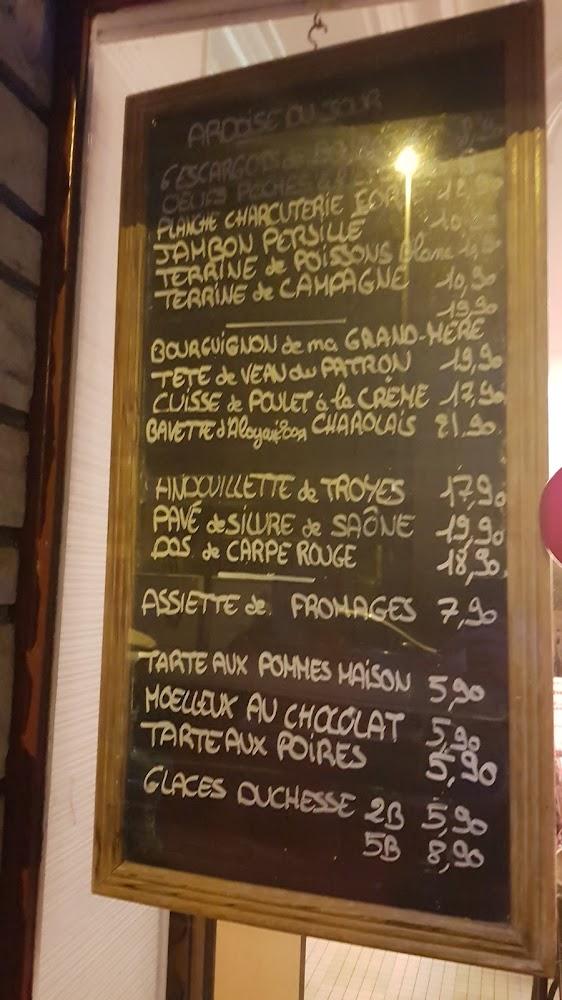 ARDOISE DU JOUR
6 ESCARGOTS de
OEUFS POCHÉS
PLANCHE CHARCUTERIE
JAMBON PERSILLÉ
TERRINE de POISSONS Blanc
TERRINE de CAMPAGNE 10,90
19,90
BOURGUIGNON de ma GRAND-MÈRE
TETE de VEAU du PATRON 19,90
CUISSE de POULET à la CRÈME 17,90
BAVETTE d'Aloyau CHAROLAIS 21.90
ANDOUILLETTE de TROYES 17,90
PAVÉ de SILURE de SAÔNE 19,90
DOS de CARPE ROUGE 18,90
ASSIETTE de FROMAGES 7,90
TARTE AUX POMMES MAISON 5,90
MOELLEUX AU CHOCOLAT 5,90
TARTE AUX POIRES 5,90
GLACES DUCHESSE 2B 5,90
5B 8,90